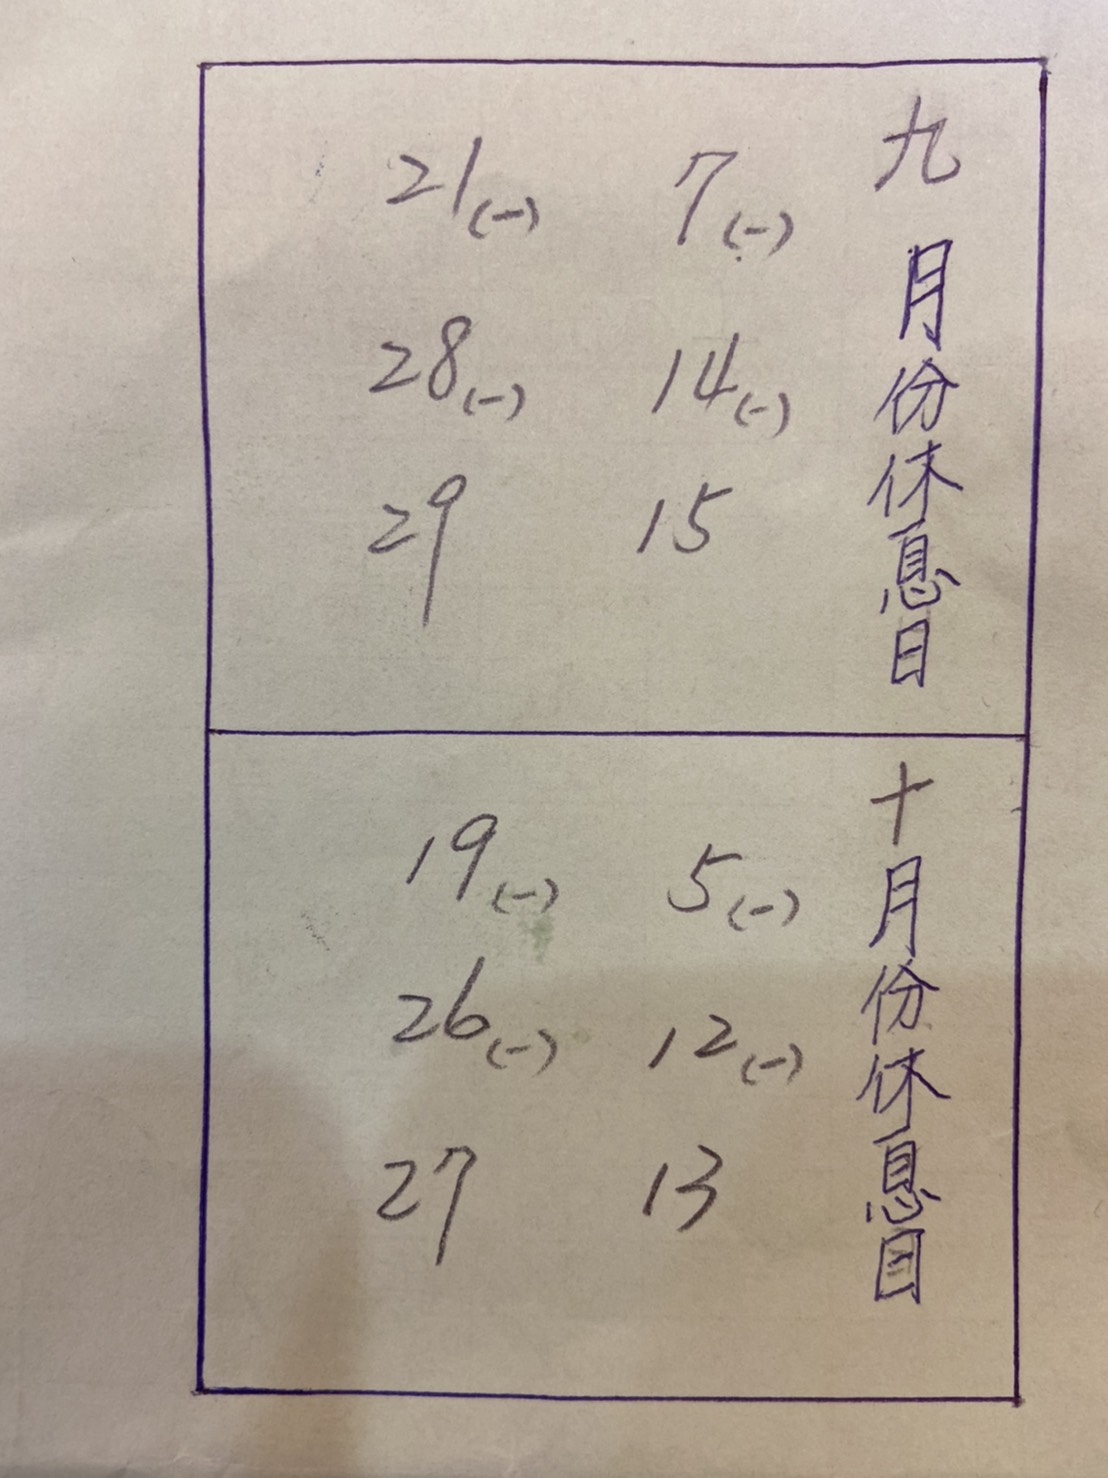 九月份休息日
7(一)
14(一)
15
21(一)
28(一)
29
十月份休息日
5(一)
12(一)
13
19(一)
26(一)
27